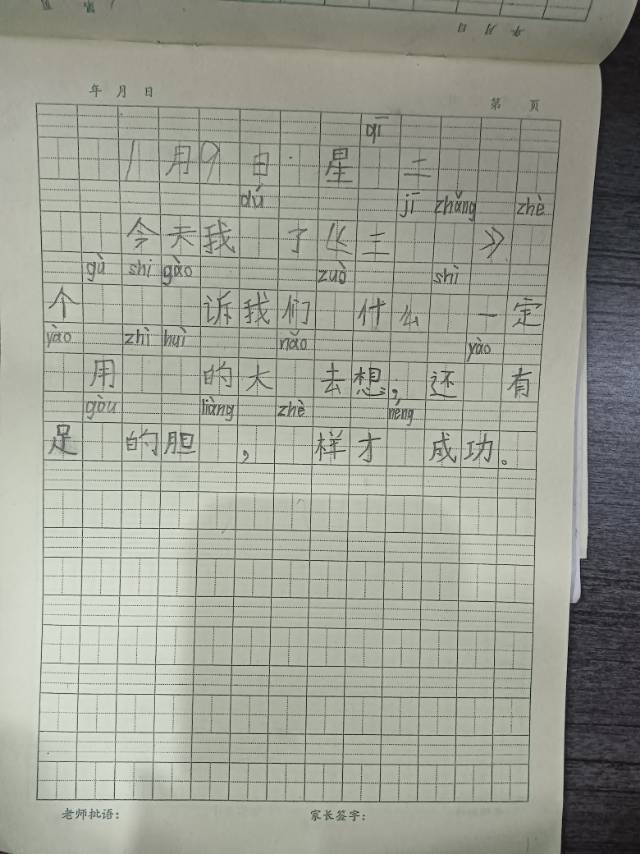 年 月 日
年 月 日
第 页
qī
11月9日 星 二
dú jī zhǎng zhè
今天我 了《三 》
gù shi gào zuò shì
个 诉我们 什么 一定
yào zhì huì nǎo yào
用 的大 去想,还 有
gòu liàng zhè néng
足 的胆 , 样才 成功。
老师批语: 家长签字: